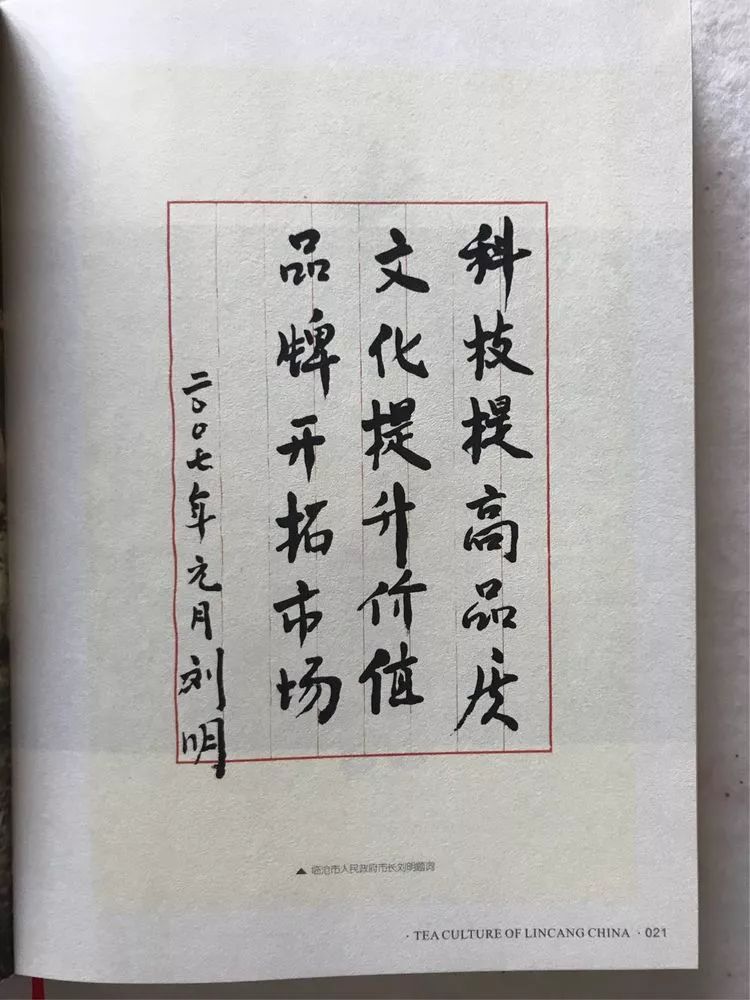 科技提高品质
文化提升价值
品牌开拓市场
二〇〇七年元月刘明
▲ 临沧市人民政府市长刘明题词
· TEA CULTURE OF LINCANG CHINA · 021